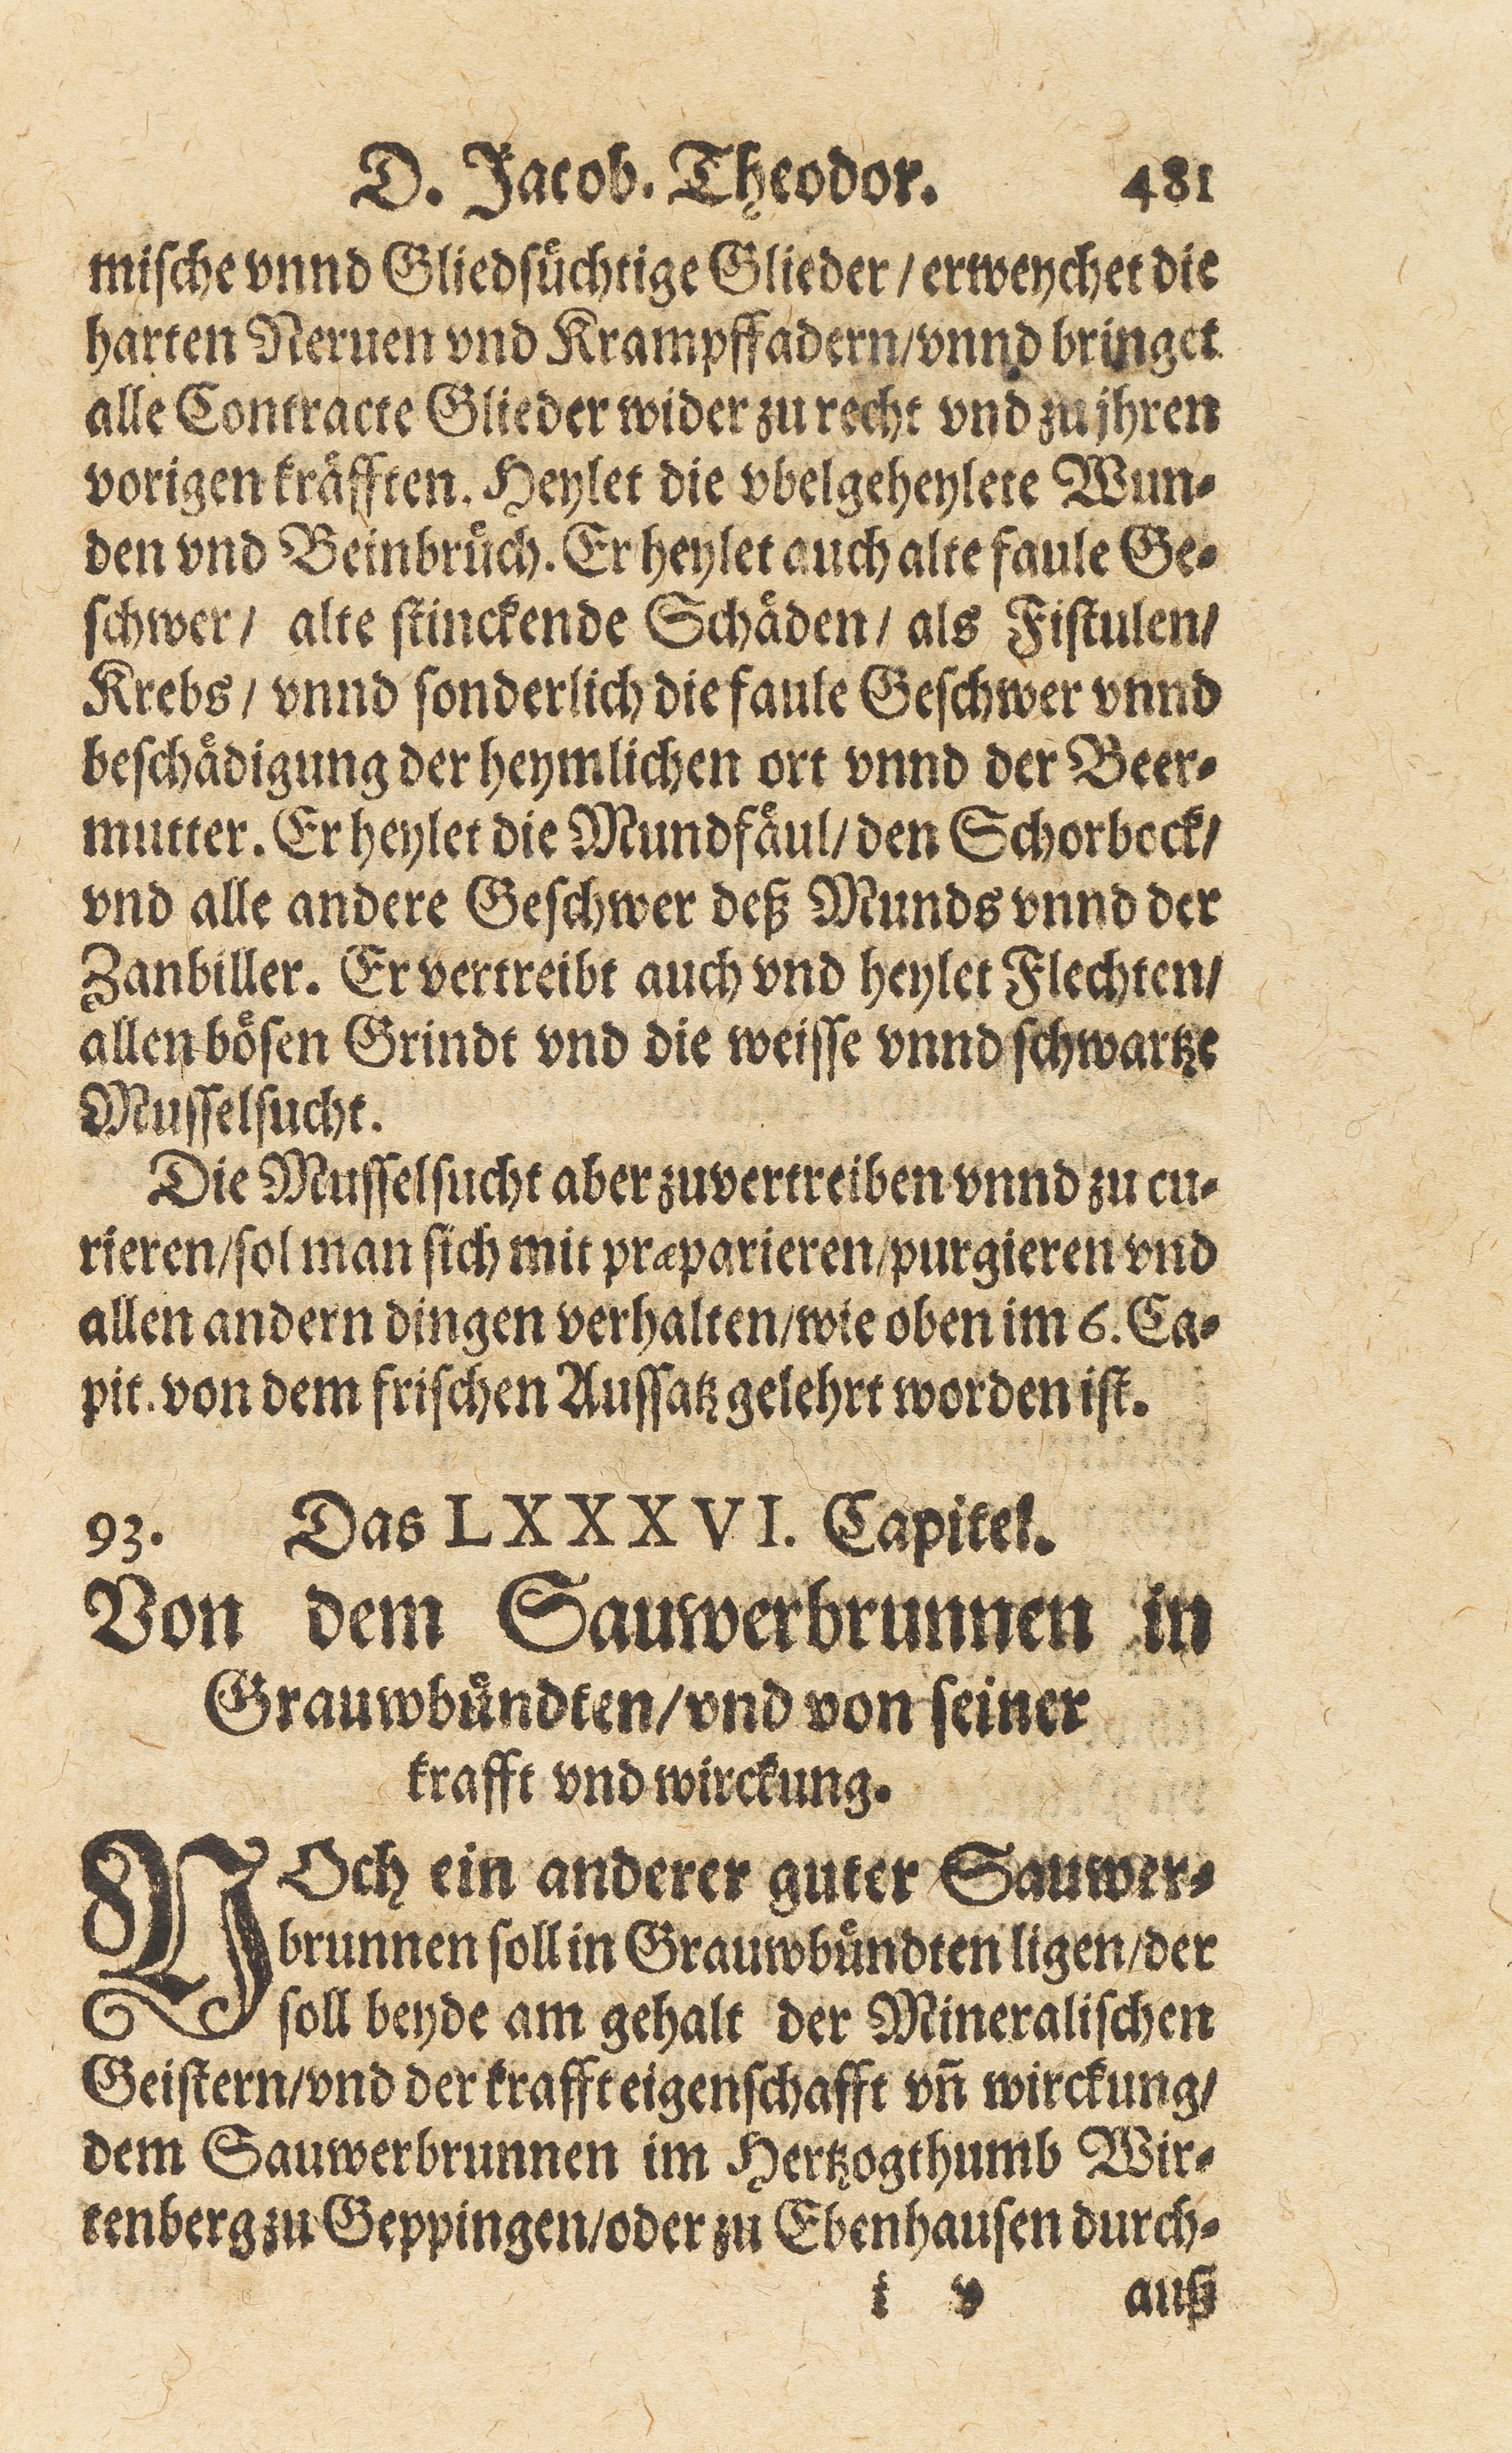 D. Jacob. Theodor. 481
miſche vnnd Gliedſuͤchtige Glieder / erweychet die
harten Neruen vnd Krampffadern/vnnd bringet
alle Contracte Glieder wider zu recht vnd zu jhren
vorigen kraͤfften. Heylet die vbelgeheylete Wun⸗
den vnd Beinbruͤch. Er heylet auch alte faule Ge⸗
ſchwer / alte ſtinckende Schaͤden / als Fiſtulen/
Krebs / vnnd ſonderlich die faule Geſchwer vnnd
beſchaͤdigung der heymlichen ort vnnd der Beer⸗
mutter. Er heylet die Mundfaͤul/ den Schorbock/
vnd alle andere Geſchwer deß Munds vnnd der
Zanbiller. Er vertreibt auch vnd heylet Flechten/
allen boͤſen Grindt vnd die weiſſe vnnd ſchwartze
Muſſelſucht.
Die Muſſelſucht aber zuvertreiben vnnd zu cu⸗
rieren/ſol man ſich mit præparieren/purgieren vnd
allen andern dingen verhalten/wie oben im 6. Ca⸗
pit. von dem friſchen Auſſatz gelehrt worden iſt.
93. Das LXXXVI. Capitel.
Von dem Sauwerbrunnen in
Grauwbuͤndten/vnd von ſeiner
krafft vnd wirckung.
NOch ein anderer guter Sauwer⸗
brunnen ſoll in Grauwbuͤndten ligen/der
ſoll beyde am gehalt der Mineraliſchen
Geiſtern/vnd der krafft eigenſchafft vn̄ wirckung/
dem Sauwerbrunnen im Hertzogthumb Wir⸗
tenberg zu Geppingen/oder zu Ebenhauſen durch⸗
i v auß